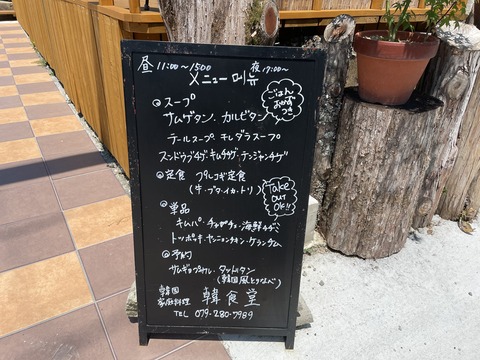 昼 11:00~1500 夜 17:00~
メニュー 메뉴
◎スープ
ごはん
おかず
つき
サムゲタン・カルビタン
テールスープ・干しダラスープ
スンドゥブチゲ・キムチチゲ・テンジャンチゲ
◎定食 プルコギ定食
(牛・ブタ・イカ・トリ)
Take
out
OK!!
◎単品
キムパ・チャプチェ・海鮮チヂミ
トッポッキ・ヤンニョンチキン・ケランチム
◎予約
サムギョプサル・タットリタン
(韓国風とりなべ)
韓国
家庭料理 韓食堂
TEL 079-280-7989